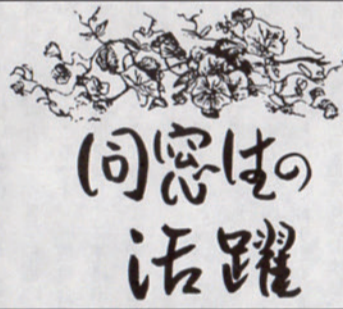 同窓生の
活躍